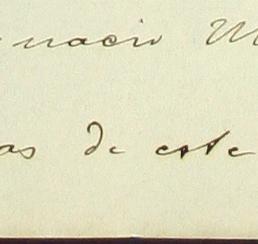 nacio M
as de este